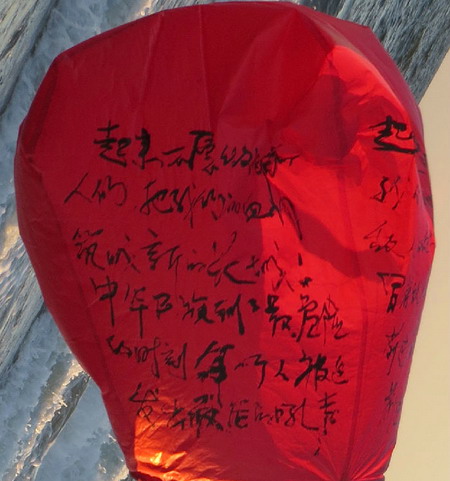 起来不愿做奴隶的
人们 把我们的血肉
筑成新的长城！
中华民族到了最危险
的时刻 每个人被迫
发出最后的吼声！
起
我
敌
冒